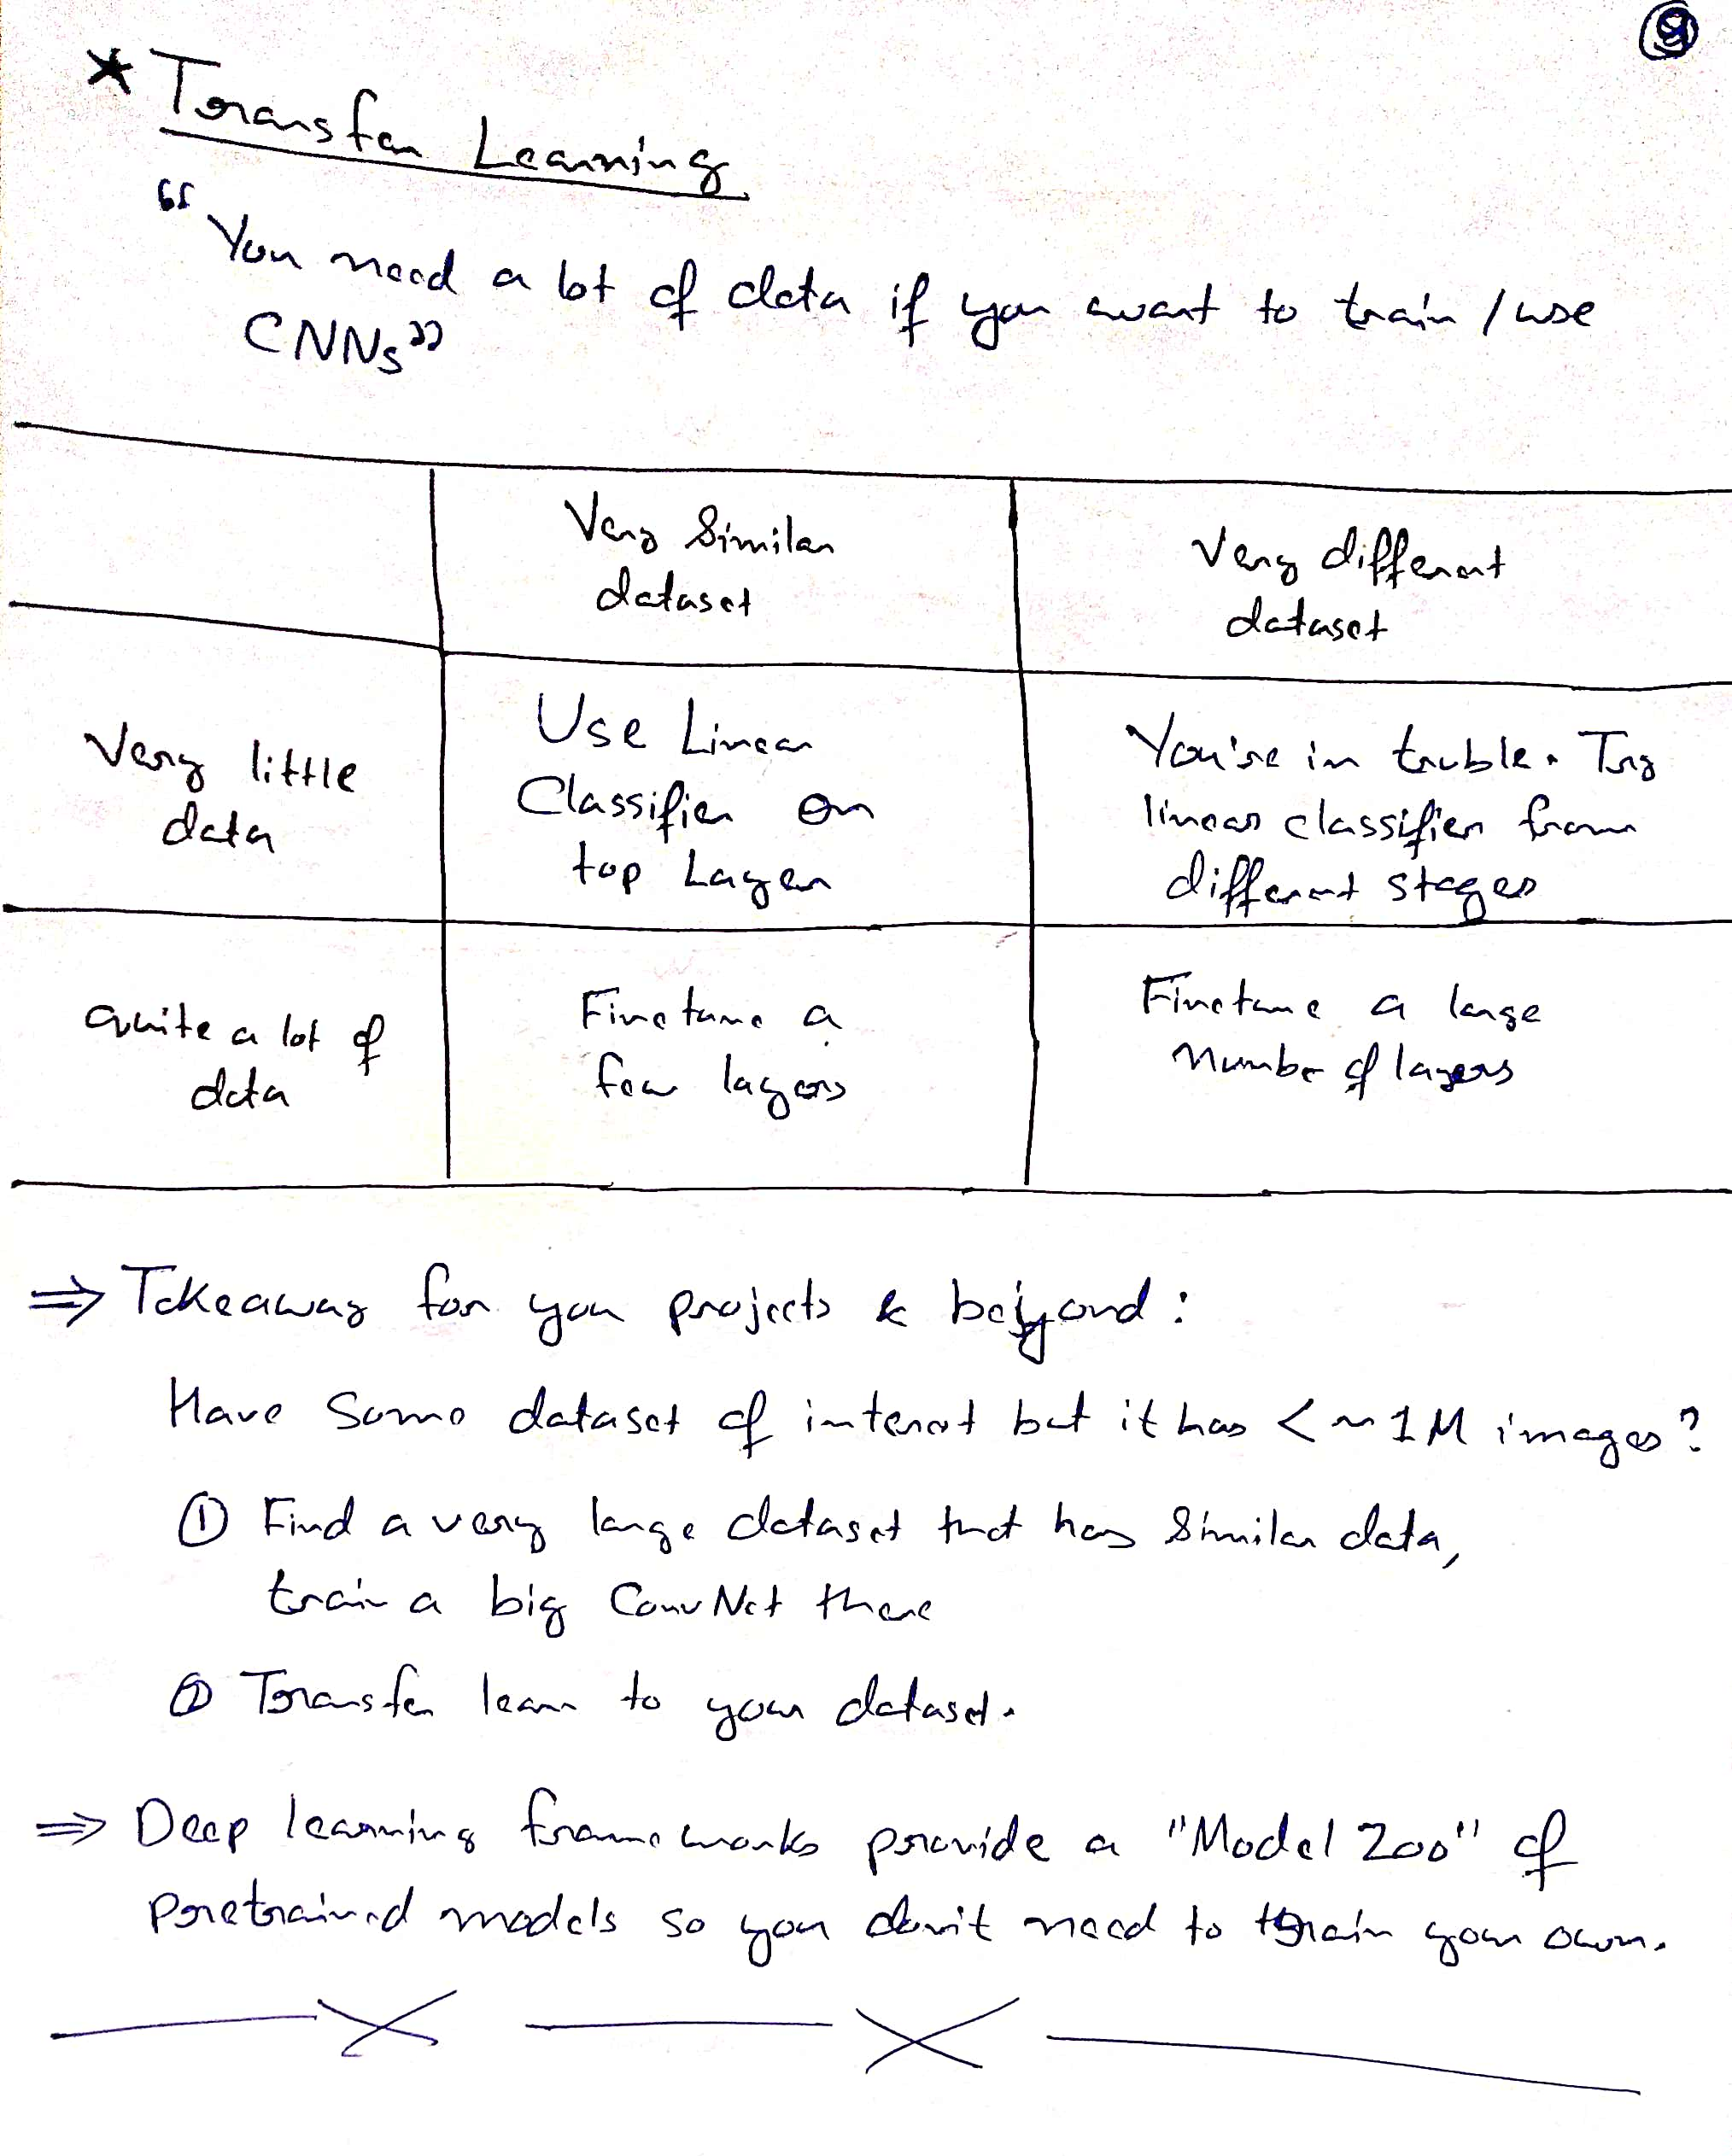 9
* Transfer Learning
“You need a lot of data if you want to train / use
CNNs”
Very Similar
dataset
Very different
dataset
Very little
data
Use Linear
Classifier on
top Layer
You're in truble. Try
linear classifier from
different stages
Quite a lot of
data
Finetune a
few layers
Finetune a large
Number of layers
⇒ Takeaway for you projects & beyond:
Have Some dataset of interest but it has < ~ 1M images?
① Find a very large dataset that has Similar data,
train a big ConvNet there
② Transfer learn to your dataset.
⇒ Deep learning frameworks provide a "Model Zoo" of
Pretrained models so you don't need to train your own.